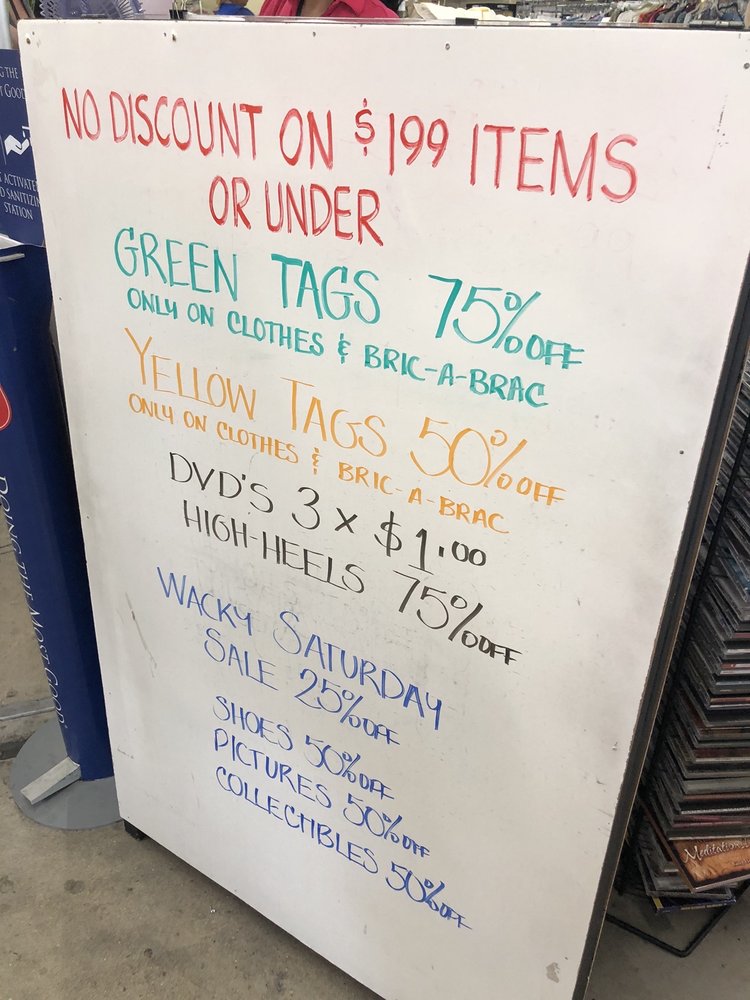 NO DISCOUNT ON $199 ITEMS
OR UNDER
GREEN TAGS 75% OFF
ONLY ON CLOTHES & BRIC-A-BRAC
YELLOW TAGS 50% OFF
ONLY ON CLOTHES & BRIC-A-BRAC
DVD'S 3 x $1.00
HIGH-HEELS 75% OFF
WACKY SATURDAY
SALE 25% OFF
SHOES 50% OFF
PICTURES 50% OFF
COLLECTIBLES 50% OFF
STATION
DOING THE MOST GOOD